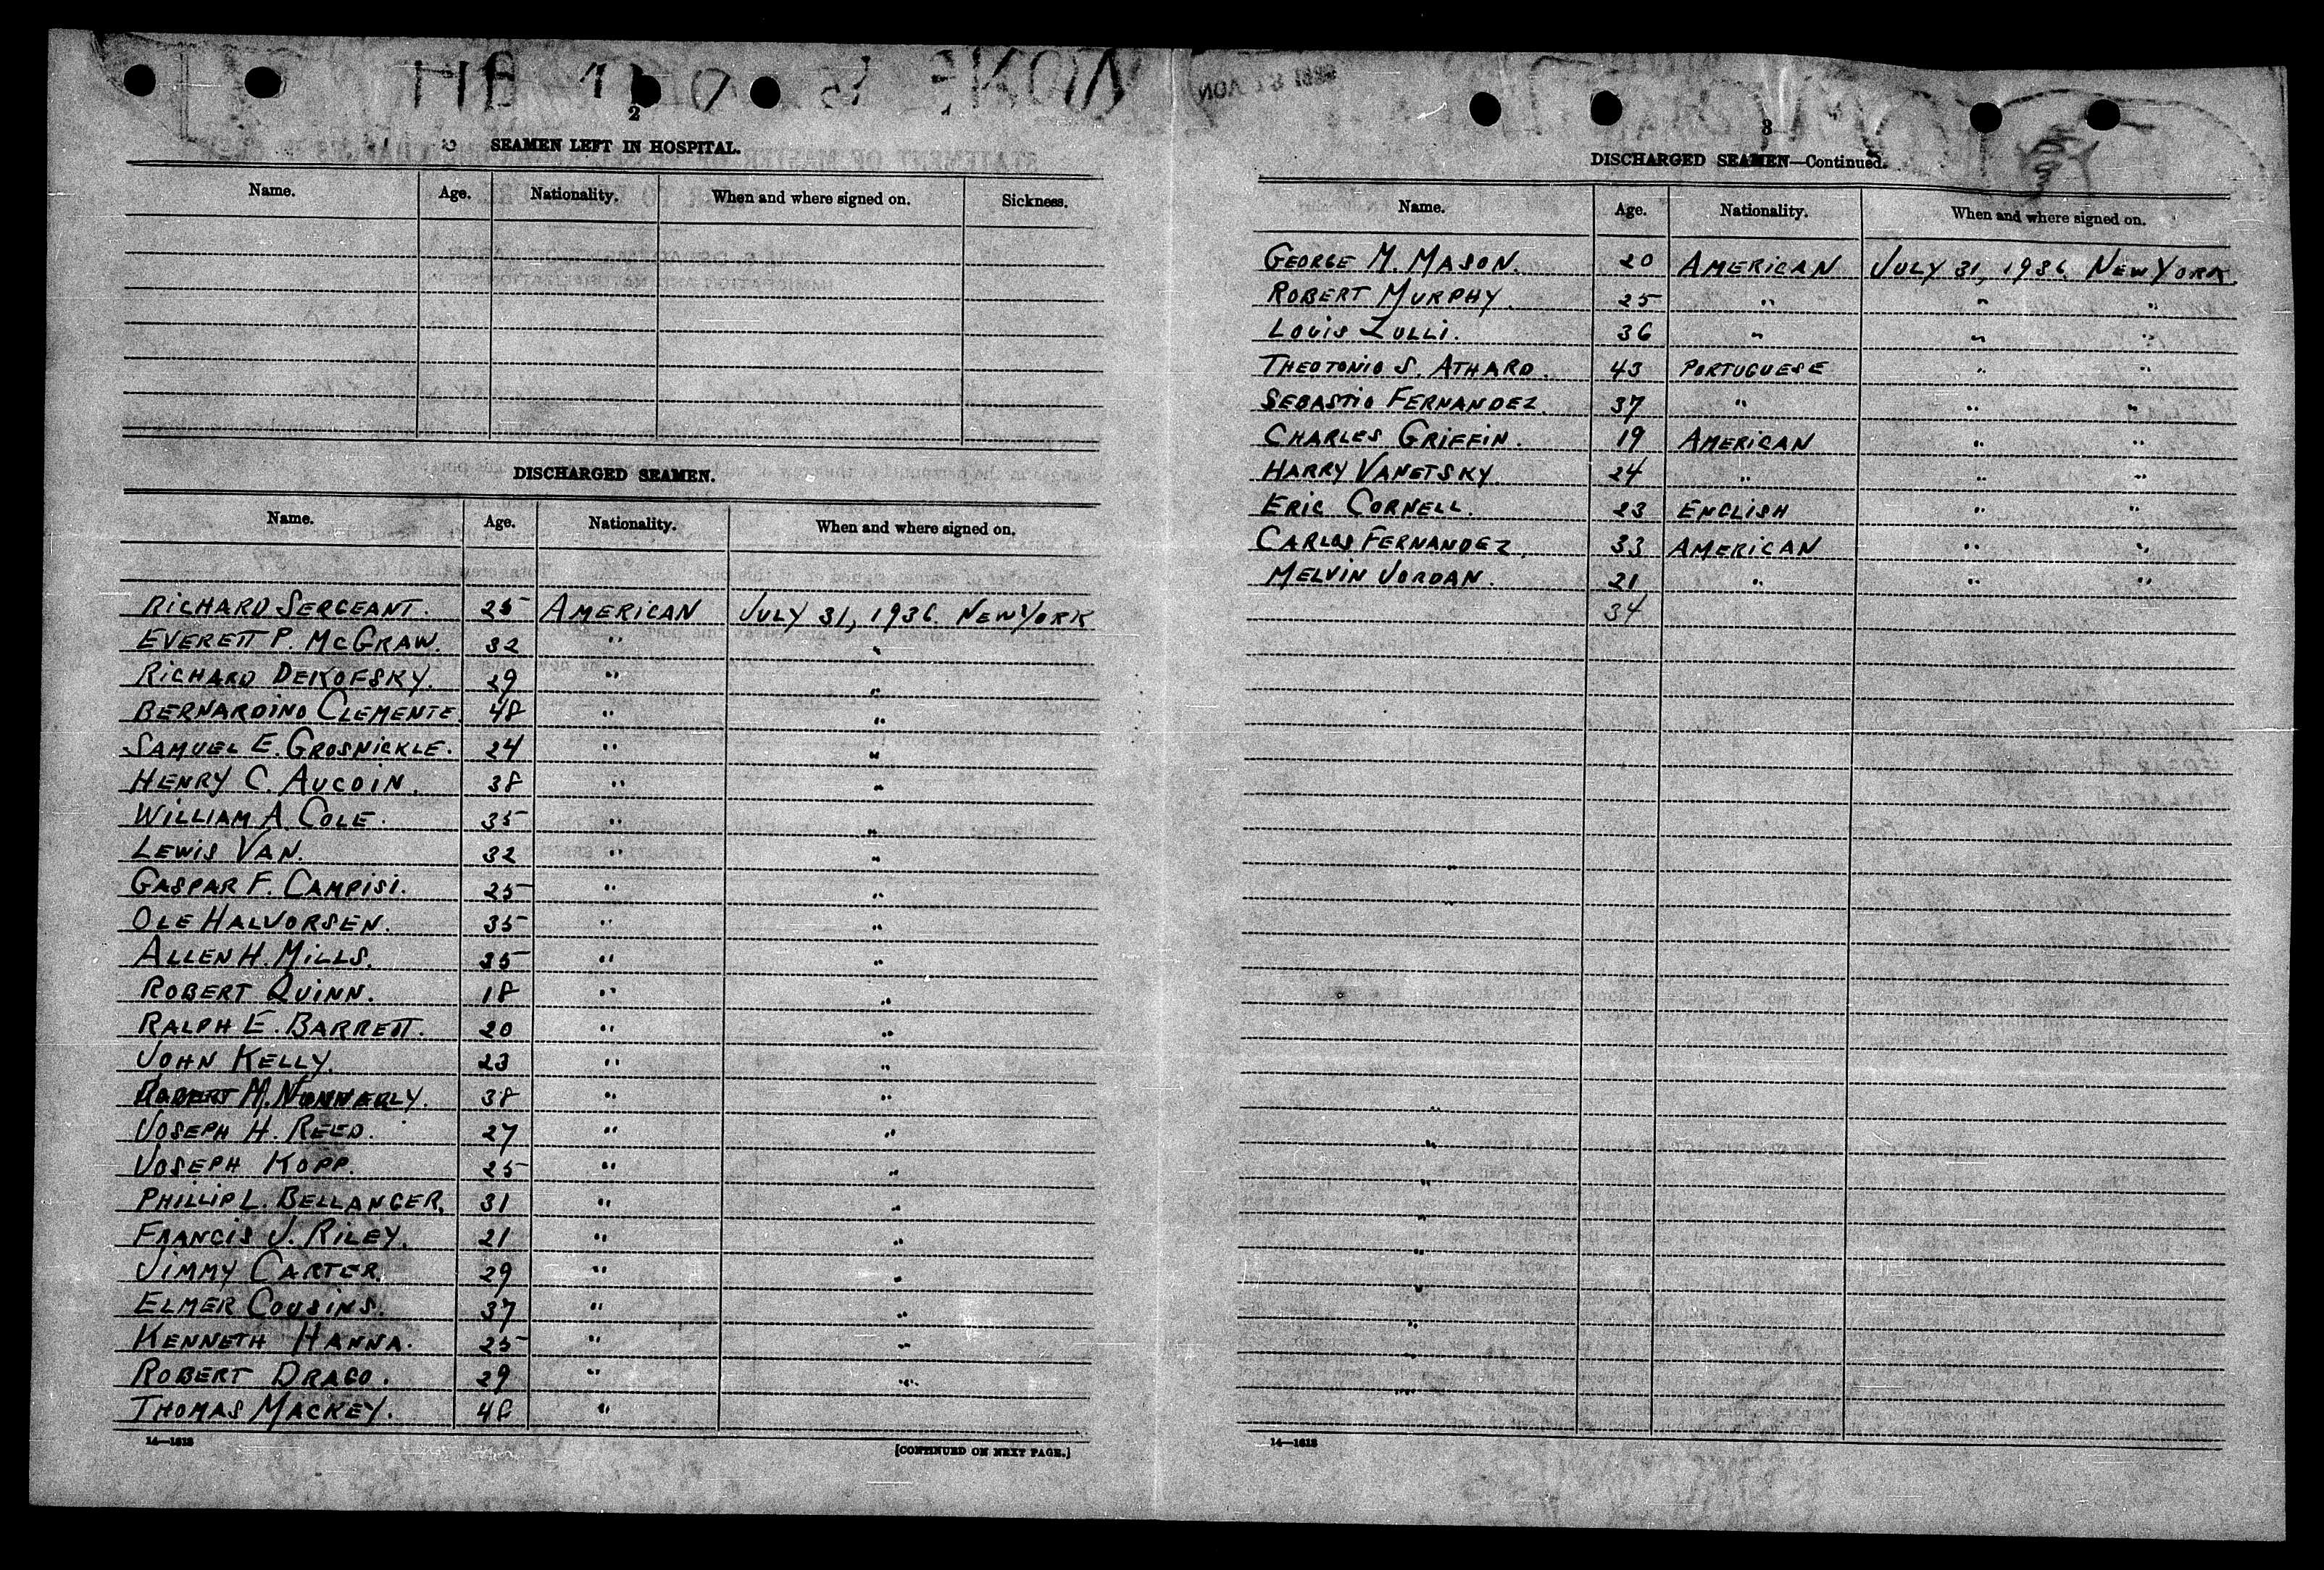 2
SEAMEN LEFT IN HOSPITAL.
Name. Age. Nationality. When and where signed on. Sickness.
DISCHARGED SEAMEN.
Name. Age. Nationality. When and where signed on.
RICHARD SERGEANT. 25 AMERICAN JULY 31, 1936. NEW YORK
EVERETT P. MCGRAW. 32 " "
RICHARD DEKOFSKY. 29 " "
BERNARDINO CLEMENTE. 48 " "
SAMUEL E. GROSNICKLE. 24 " "
HENRY C. AUCOIN. 38 " "
WILLIAM A. COLE. 35 " "
LEWIS VAN. 32 " "
GASPAR F. CAMPISI. 25 " "
OLE HALVORSEN. 35 " "
ALLEN H. MILLS. 35 " "
ROBERT QUINN. 18 " "
RALPH E. BARRETT. 20 " "
JOHN KELLY. 23 " "
ROBERT M. NUNNERLY. 38 " "
JOSEPH H. REED. 27 " "
JOSEPH KOPP. 25 " "
PHILLIP L. BELLANGER. 31 " "
FRANCIS J. RILEY. 21 " "
JIMMY CARTER. 29 " "
ELMER COUSINS. 37 " "
KENNETH HANNA. 25 " "
ROBERT DRAGO. 29 " "
THOMAS MACKEY. 48 "
14—1613
[CONTINUED ON NEXT PAGE.]
3
DISCHARGED SEAMEN—Continued.
Name. Age. Nationality. When and where signed on.
GEORGE M. MASON. 20 AMERICAN JULY 31, 1936 NEW YORK.
ROBERT MURPHY. 25 " " "
LOUIS ZULLI. 36 " " "
THEOTONIO S. ATHARD. 43 PORTUGUESE " "
SEBASTIO FERNANDEZ. 37 " " "
CHARLES GRIFFIN. 19 AMERICAN " "
HARRY VANETSKY. 24 " " "
ERIC CORNELL. 23 ENGLISH " "
CARLOS FERNANDEZ. 33 AMERICAN " "
MELVIN JORDAN. 21 " " "
34
14—1613